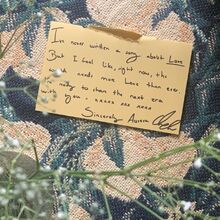 I've never written a song about Love
But I feel like, right now, the
needs more Love than ever
ready to share the next era
with you - xxxxx xxx xxxx
Sincerely Aurora